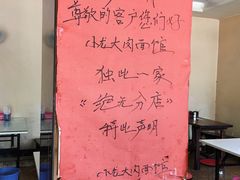 尊敬的客户您们好
小龙大肉面馆
独此一家
《绝无分店》
特此声明
小龙大肉面馆